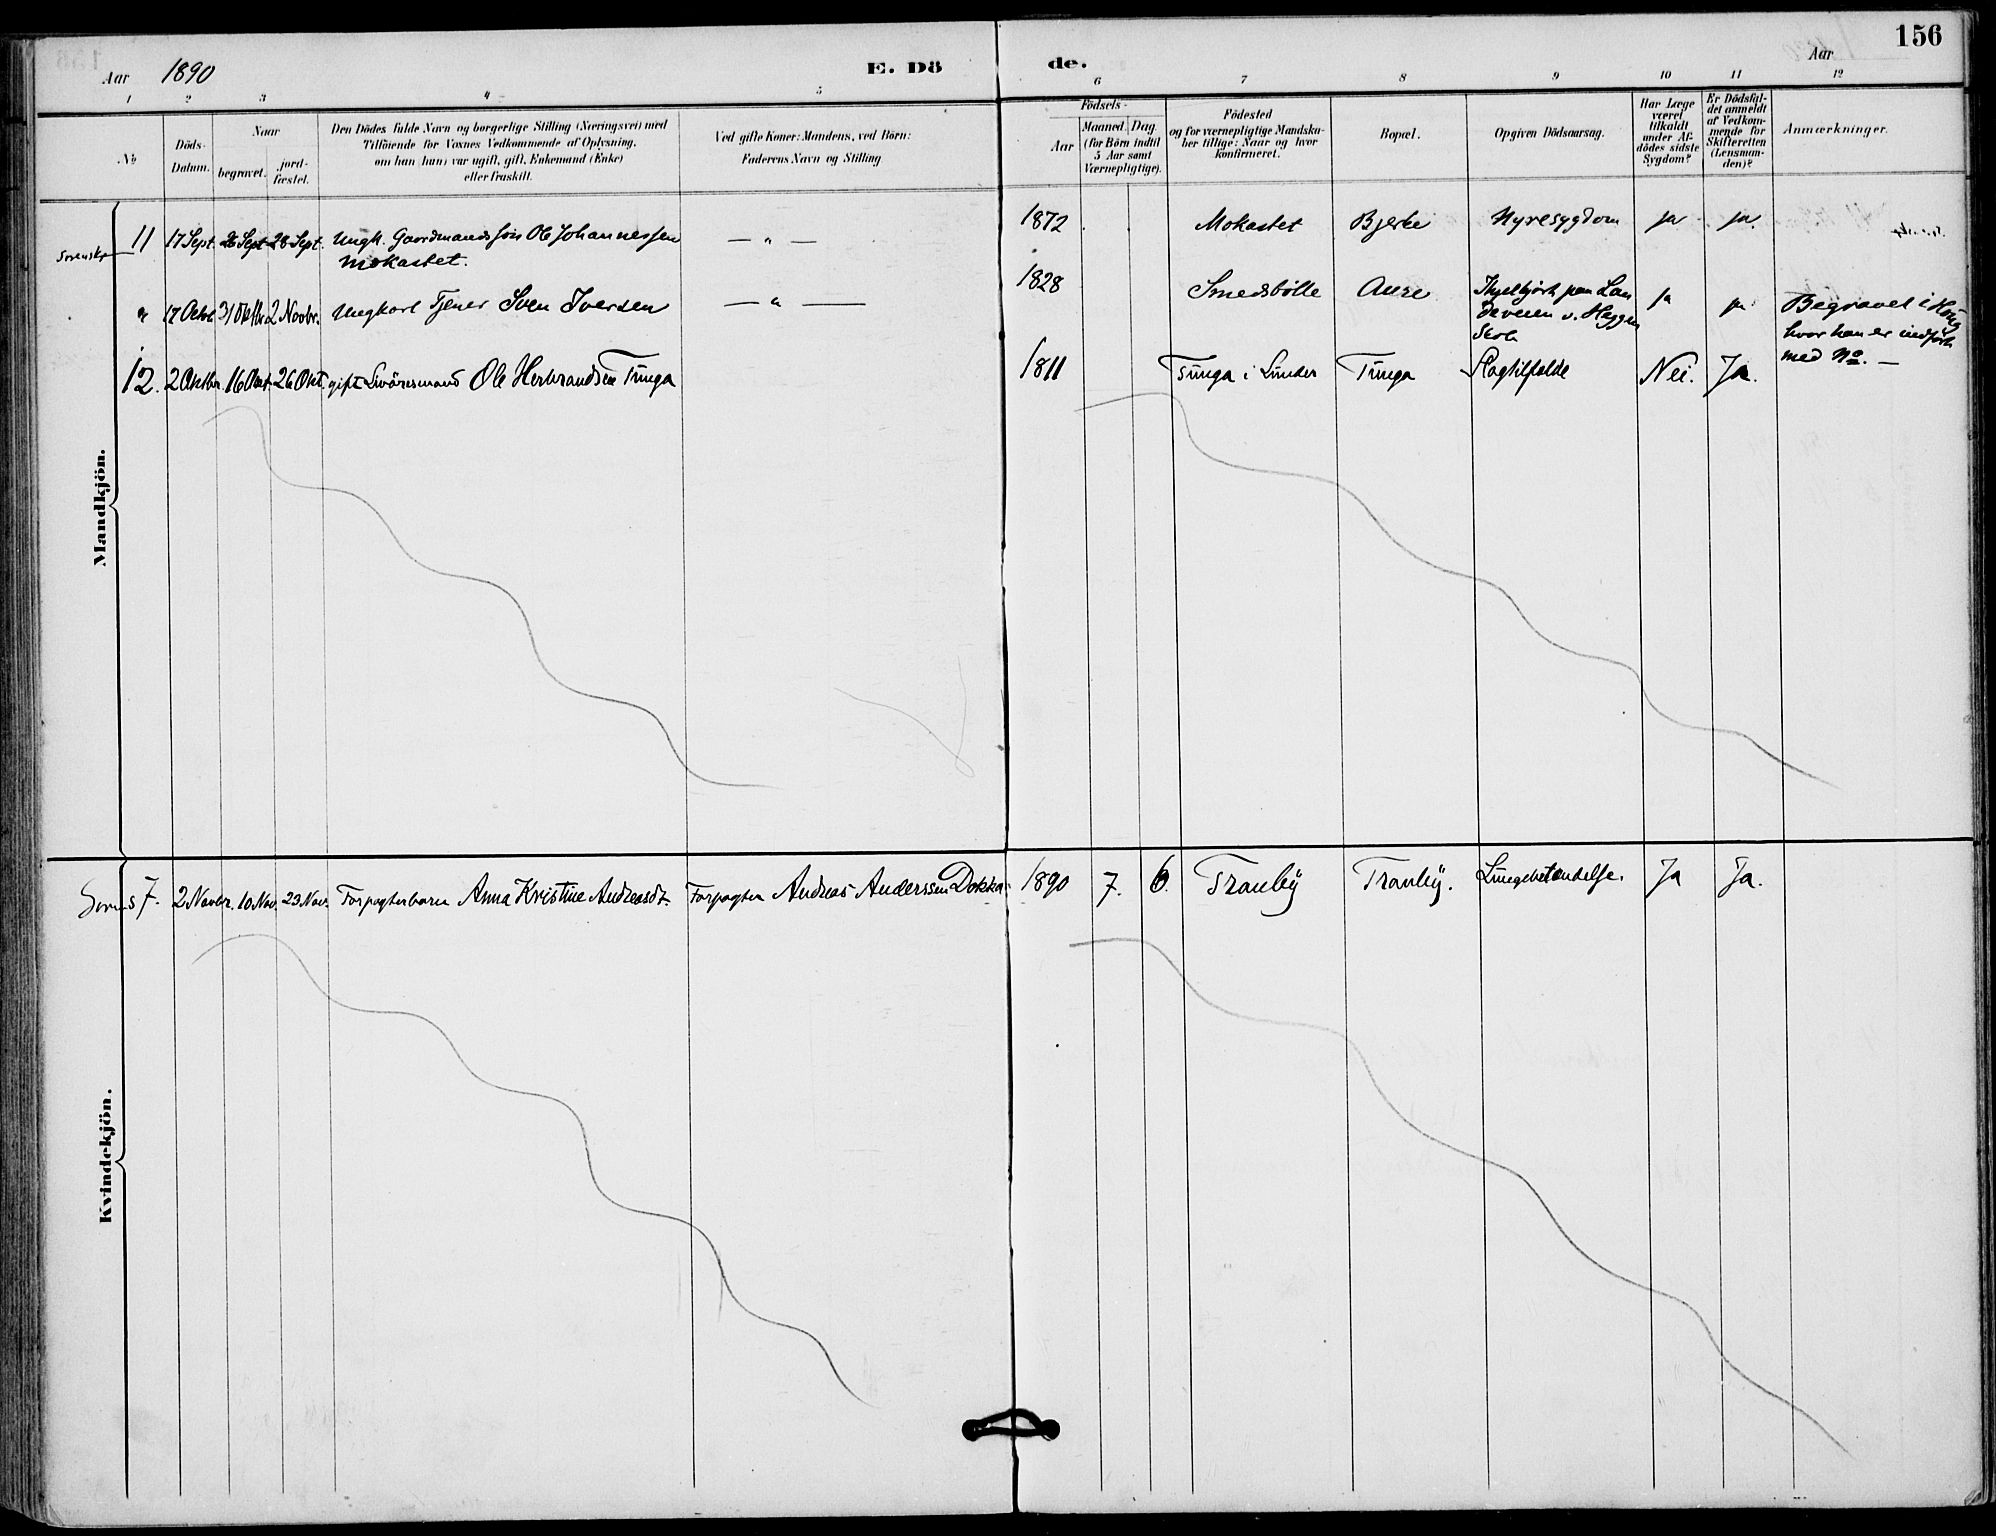 156
Aar 1890
E. Dö
de.
Aar
1 2 3 4 5 6 7 8 9 10 11 12
No
Döds-
Datum.
Naar
begravet.
jord-
fæstet.
Den Dödes fulde Navn og borgerlige Stilling (Næringsvei) med
Tilföiende for Voxnes Vedkommende af Oplysning,
om han (hun) var ugift, gift, Enkemand (Enke)
eller fraskilt.
Ved gifte Koner: Mandens, ved Börn:
Faderens Navn og Stilling.
Födsels-
Aar
Maaned. Dag.
(for Börn indtil
5 Aar samt
Værnepligtige).
Födested
og for værnepligtige Mandska-
ber tillige: Naar og hvor
konfirmeret.
Bopæl.
Opgiven Dödsaarsag.
Har Læge
været
tilkaldt
under Af-
dödes sidste
Sygdom?
Er Dödsfal-
det anmeldt
af Vedkom-
mende for
Skifteretten
(Lensman-
den)?
Anmærkninger.
Mandkjön.
11 17 Sept. 28 Sept. Ungk. Gaardmandssön Ole Johannessen
Mokastet.
— " —
1872 Mokastet Bjerke Nyresygdom ja ja.
" 17 Octbr. 31 Oktbr. 2 Novbr. Ungkarl Tjener Sven Iversen — " —
1828 Smedsbölle Aure Ihjelkjört paa Lan
deveien v. Heggen
Skole
ja ja
Begravet i
hvor han er indfört
med No. —
12. 2 Oktbr. 16 Okt. 26 Okt. gift Livöresmand Ole Herbrandsen Tunga
1811 Tunga i Lunder Tunga Slagtilfælde Nei. Ja.
Kvindekjön.
7. 2 Novbr. 10 Nov. 23 Nov. Forpagterbarn Anna Kristine Andreasdt. Forpagter Andreas Anderssen Dokka
1890 7. 6. Tranby Tranby. Lungebetændelse. Ja Ja.